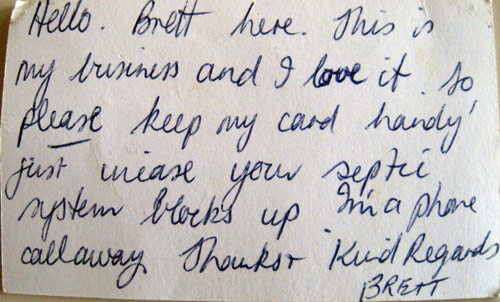 Hello. Brett here. This is
my business and I love it. So
please keep my card handy'
just incase your septic
system blocks up I'm a phone
call away Thanks + Kind Regards
BRETT